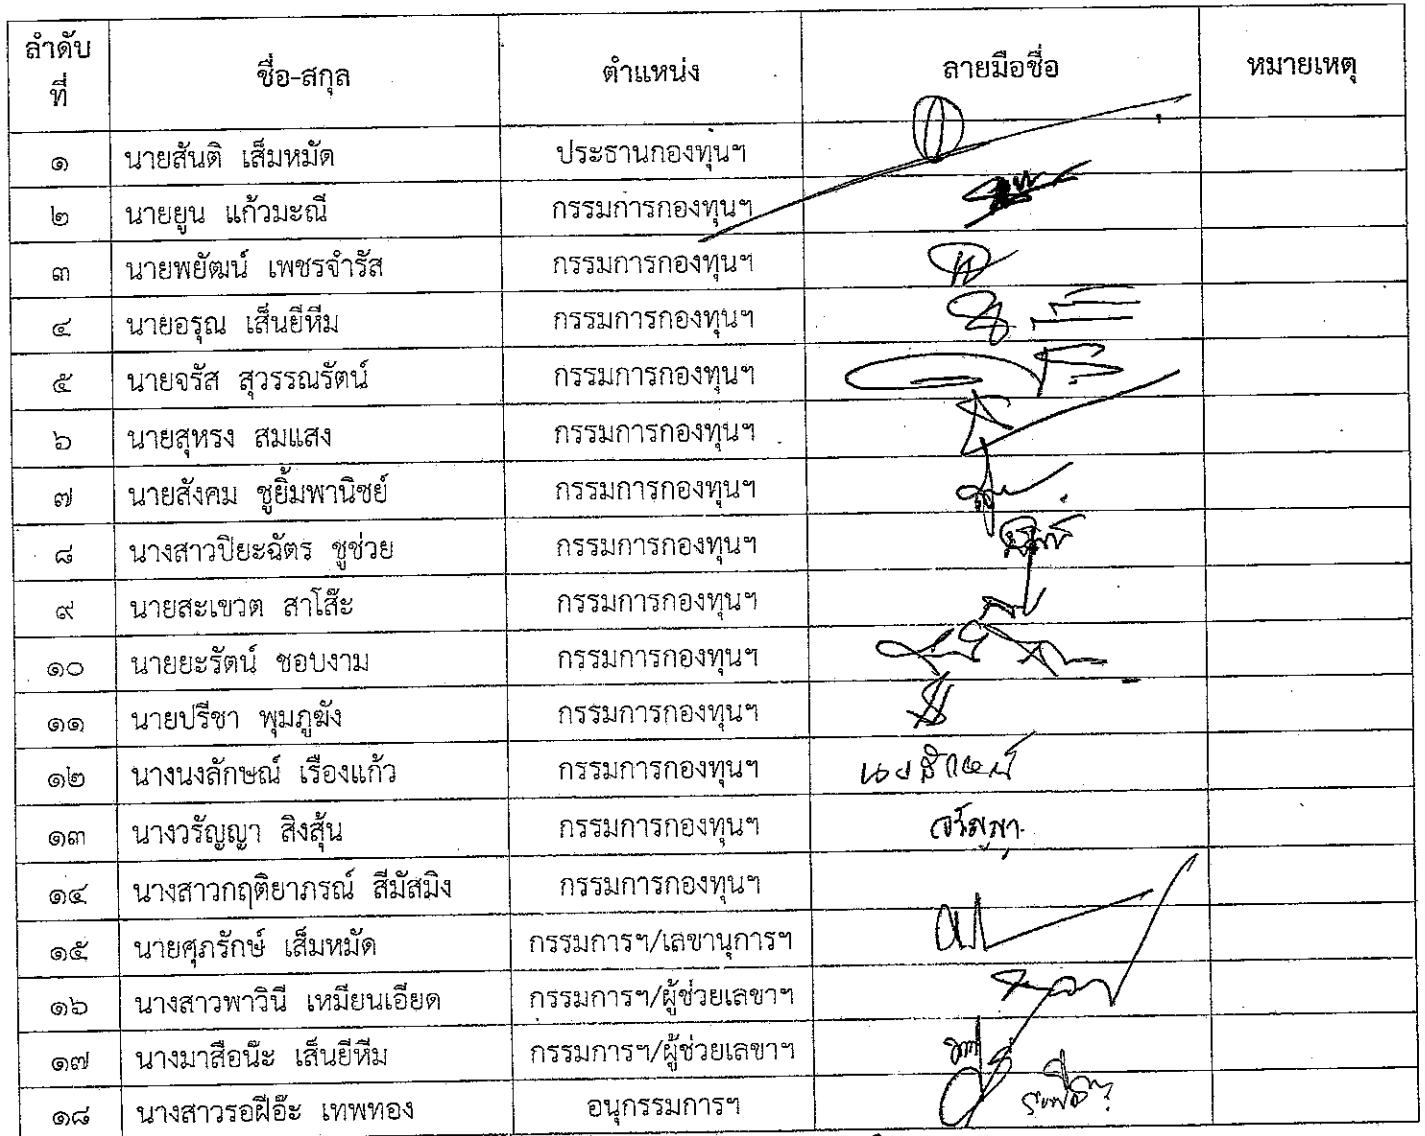 ลำดับที่ ชื่อ-สกุล ตำแหน่ง ลายมือชื่อ หมายเหตุ
๑ นายสันติ เส็มหมัด ประธานกองทุนฯ
๒ นายยูน แก้วมะณี กรรมการกองทุนฯ
๓ นายพยัฒน์ เพชรจำรัส กรรมการกองทุนฯ
๔ นายอรุณ เส็นยีหีม กรรมการกองทุนฯ
๕ นายจรัส สุวรรณรัตน์ กรรมการกองทุนฯ
๖ นายสุหรง สมแสง กรรมการกองทุนฯ
๗ นายสังคม ชูยิ้มพานิชย์ กรรมการกองทุนฯ
๘ นางสาวปิยะฉัตร ชูช่วย กรรมการกองทุนฯ
๙ นายสะเขวต สาโส๊ะ กรรมการกองทุนฯ
๑๐ นายยะรัตน์ ชอบงาม กรรมการกองทุนฯ
๑๑ นายปรีชา พุมภูฆัง กรรมการกองทุนฯ
๑๒ นางนงลักษณ์ เรืองแก้ว กรรมการกองทุนฯ นงลักษณ์
๑๓ นางวรัญญา สิงสุ้น กรรมการกองทุนฯ วรัญญา
๑๔ นางสาวกฤติยาภรณ์ สีมัสมิง กรรมการกองทุนฯ
๑๕ นายศุภรักษ์ เส็มหมัด กรรมการฯ/เลขานุการฯ
๑๖ นางสาวพาวินี เหมียนเอียด กรรมการฯ/ผู้ช่วยเลขาฯ
๑๗ นางมาสือนิ๊ะ เส็นยีหีม กรรมการฯ/ผู้ช่วยเลขาฯ
๑๘ นางสาวรอฝีอ๊ะ เทพทอง อนุกรรมการฯ